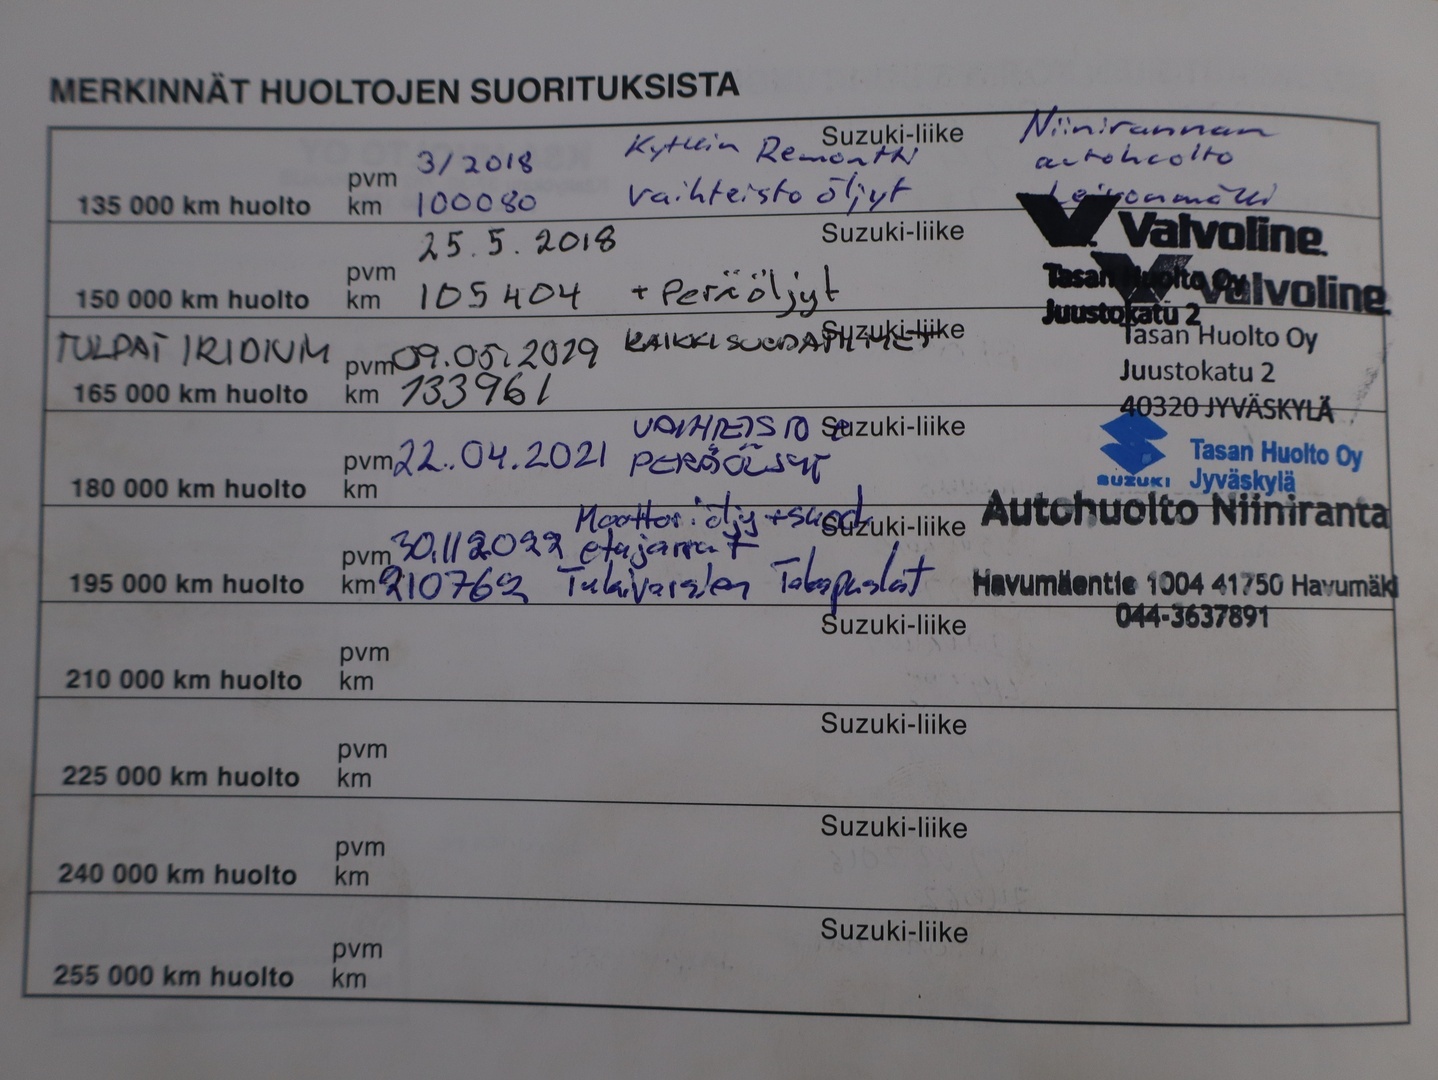 MERKINNÄT HUOLTOJEN SUORITUKSISTA
135 000 km huolto pvm 3/2018 km 100080 Suzuki-liike
Kytkin Remontti
vaihteisto öljyt
Niinirannan
autohuolto
Leivonmäki
150 000 km huolto pvm 25.5.2018 km 105404 Suzuki-liike
+ Peräöljyt
Valvoline
Tasan Huolto Oy
Juustokatu 2
TULPAT IRIDIUM
165 000 km huolto pvm km 133961 Suzuki-liike
KAIKKI SUODATTIMET
Valvoline
Tasan Huolto Oy
Juustokatu 2
40320 JYVÄSKYLÄ
180 000 km huolto pvm 22.04.2021 km Suzuki-liike
VAIHTEISTO
PERÄÖLJYT
SUZUKI
Tasan Huolto Oy
Jyväskylä
195 000 km huolto pvm 30.11.2022 km 210762 Suzuki-liike
Moottoriöljy + suod.
etujarrut
Tukivarsien Takapuslat
Autohuolto Niiniranta
Havumäentie 1004 41750 Havumäki
044-3637891
210 000 km huolto pvm km Suzuki-liike
225 000 km huolto pvm km Suzuki-liike
240 000 km huolto pvm km Suzuki-liike
255 000 km huolto pvm km Suzuki-liike